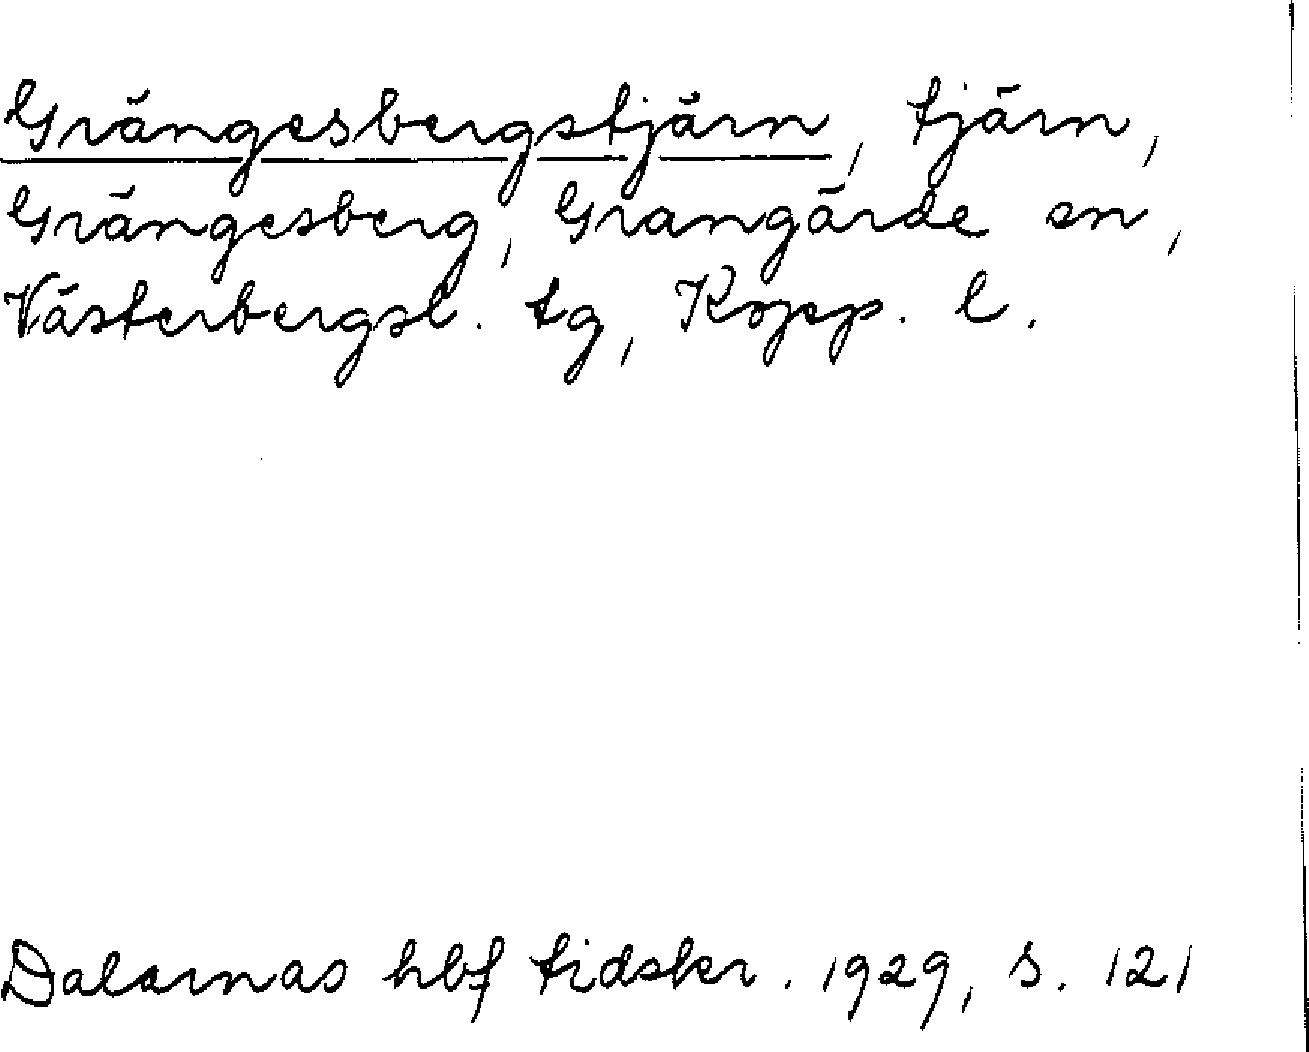 Grängesbergstjärn, tjärn,
Grängesberg, Grangärde sn,
Västerbergsl. tg, Kopp. l.
Dalarnas hbf tidskr. 1929, s. 121